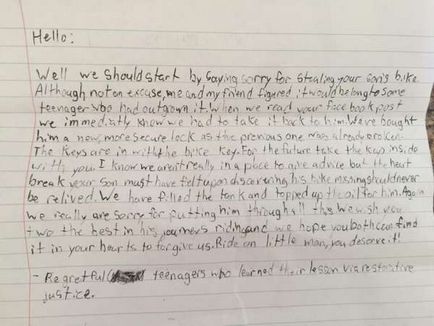 Hello:
Well we should start by saying sorry for stealing your son's bike.
Although not an excuse, me and my friend figured it would belong to some
teenager who had outgrown it. When we read your facebook post
we immediatly know we had to take it back to him. We've bought
him a new, more secure lock as the previous one was already broken.
The keys are in with the bike key. For the future take the two inside
with you. I know we aren't really in a place to give advice but the heart
break your son must have felt upon discovering his bike missing should never
be relived. We have filled the tank and topped up the oil for him. Again
we really are sorry for putting him through all this. We wish you
two the best in his journeys riding and we hope you both can find
it in your hearts to forgive us. Ride on little man, you deserve it!
- Regretful teenagers who learned their lesson via restorative
justice.